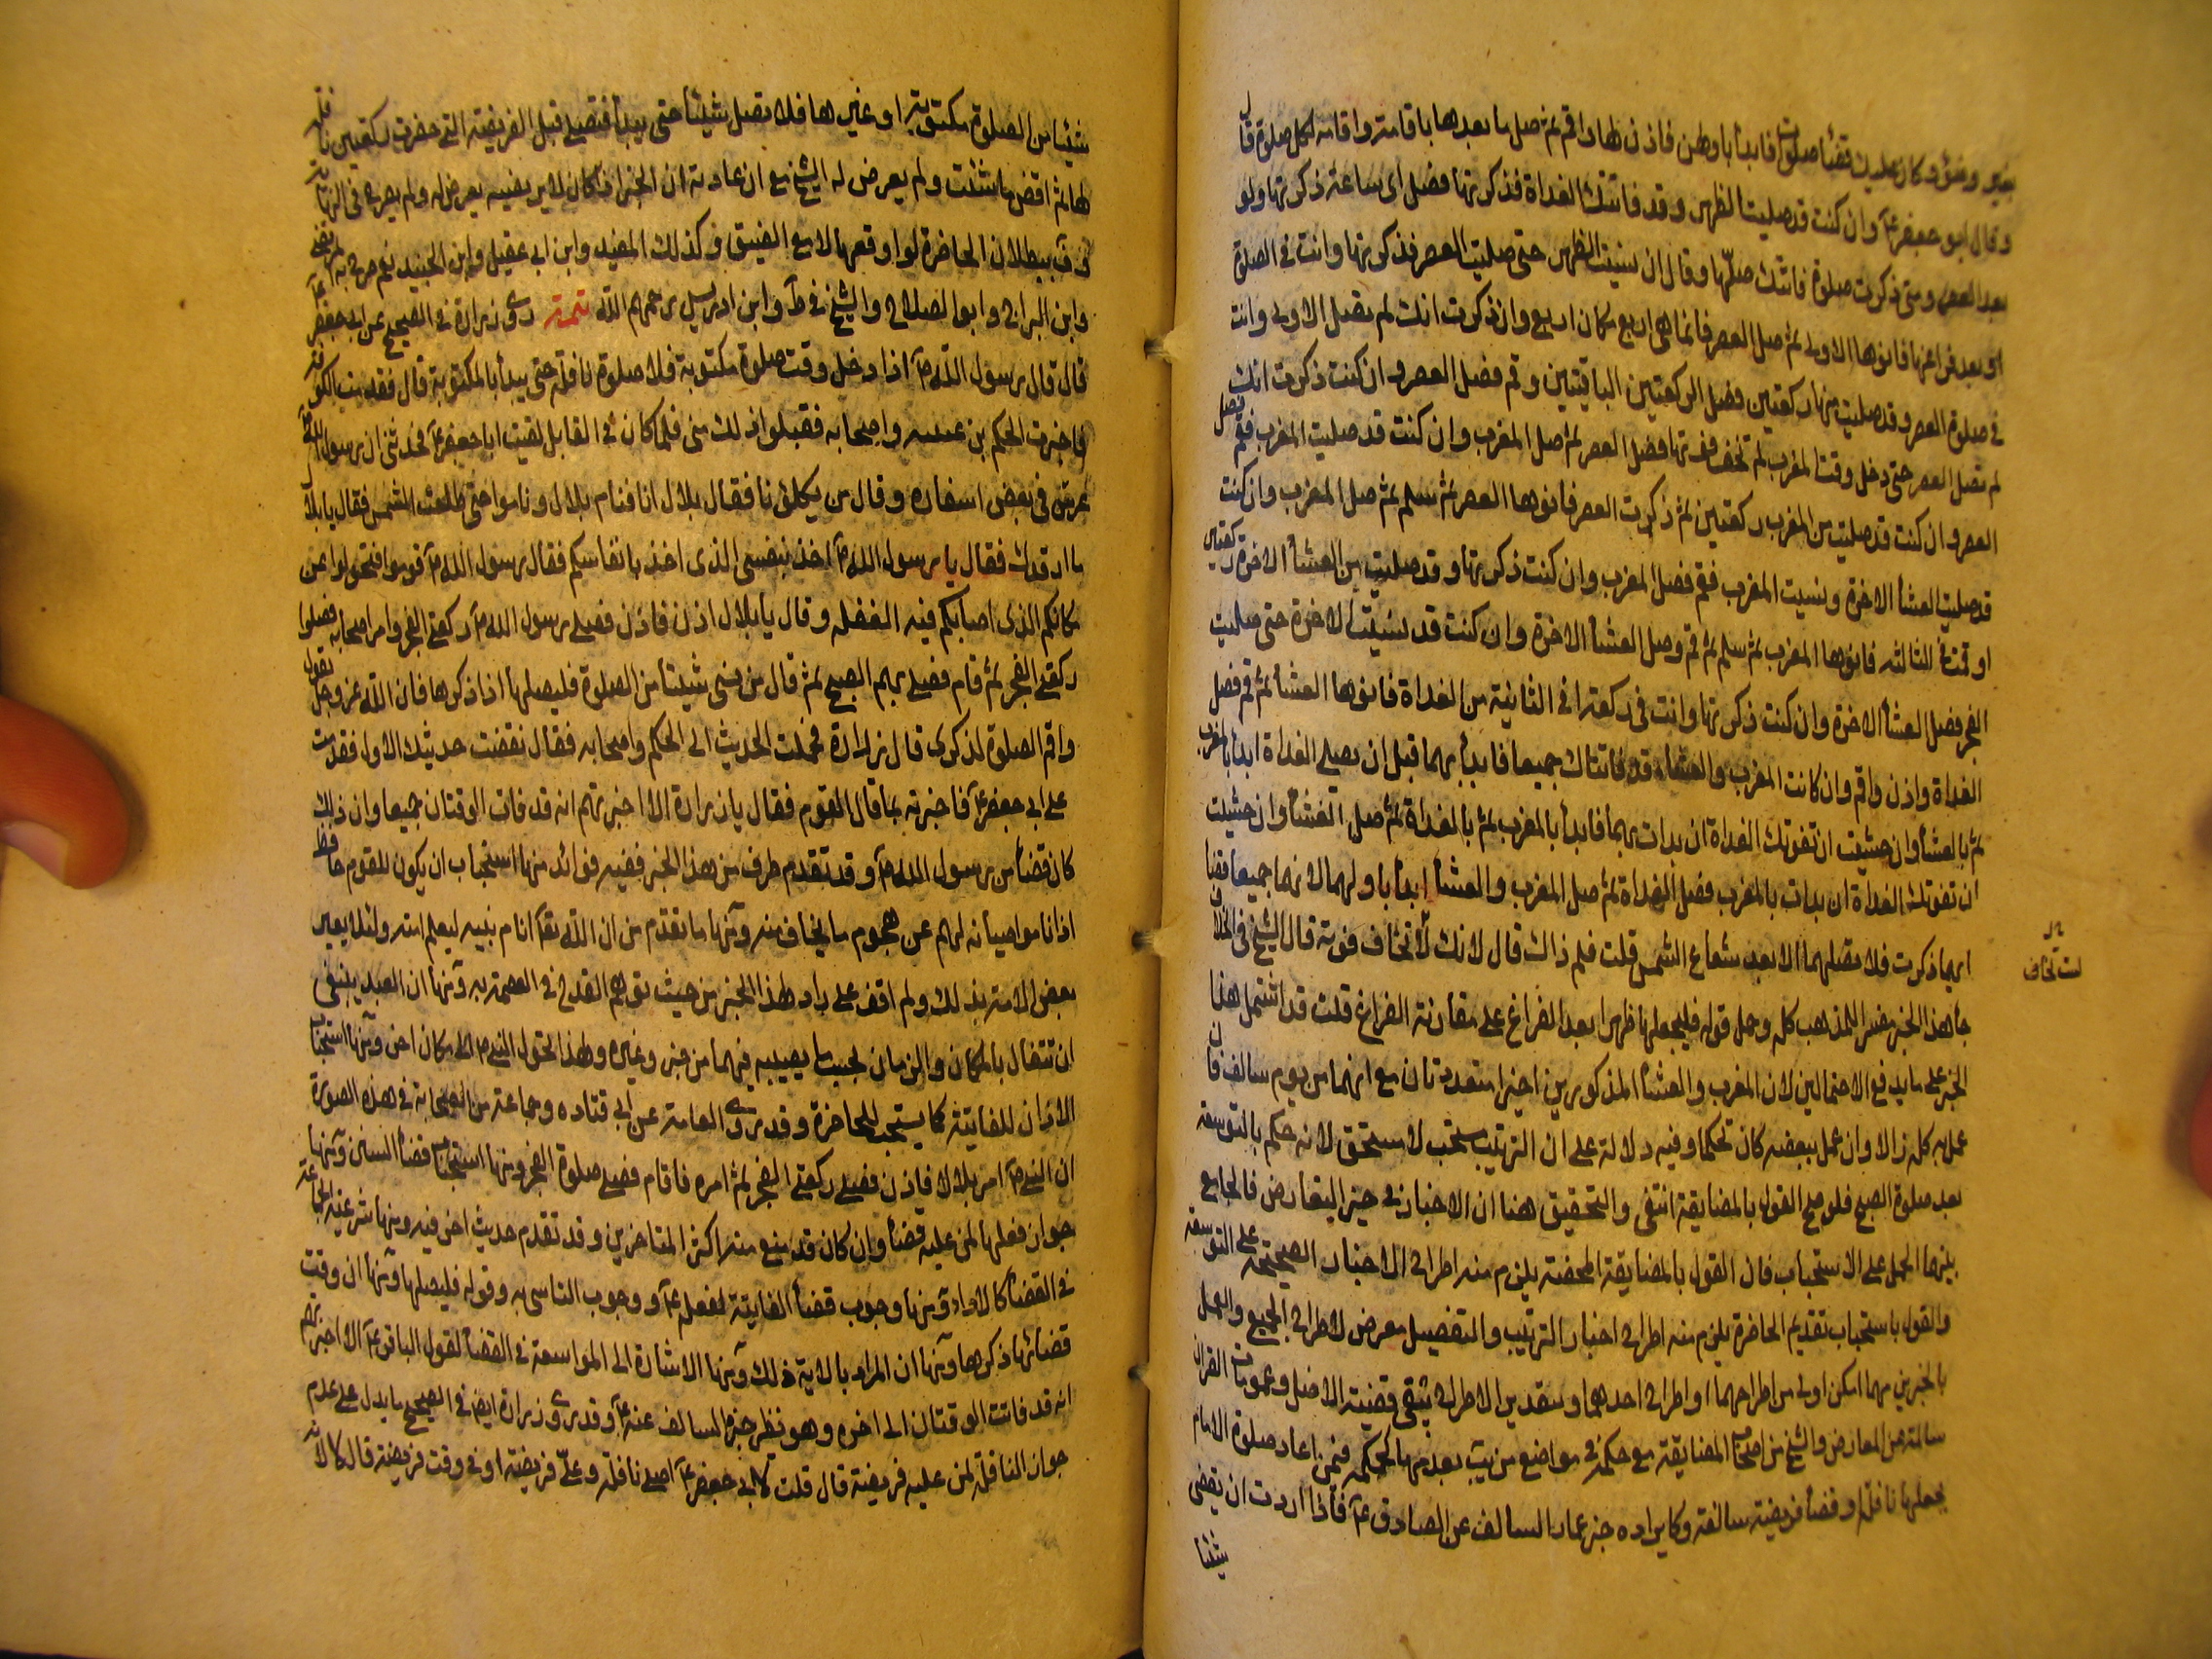 بغير وضوء وكان عليك قضأ صلوات فابدأ باولهن فاذن لها واقم ثم صل ما بعدها باقامة واقامه لكل صلوة قال
وقال ابو جعفر ع وان كنت قد صليت الظهر وقد فاتتك الغداة فذكرتها فصل اى ساعة ذكرتها ولو
بعد العصر ومتى ذكرت صلوة فاتتك صليتها وقال ان نسيت الظهر حتى صليت العصر فذكرتها وانت في الصلوة
او بعد فراغها فانوها الاولى ثم صل العصر فانما هي اربع مكان اربع وان ذكرت انك لم تصل الاولى وانت
في صلوة العصر وقد صليت منها ركعتين فصل الركعتين الباقيتين وقم فصل العصر وان كنت ذكرت انك
لم تصل العصر حتى دخل وقت المغرب لم تخف فوتها فصل العصر ثم صل المغرب وان كنت قد صليت المغرب فقم فصل
العصر وان كنت قد صليت من المغرب ركعتين ثم ذكرت العصر فانوها العصر ثم سلم ثم صل المغرب وان كنت
قد صليت العشأ الاخرة ونسيت المغرب فقم فصل المغرب وان كنت ذكرتها وقد صليت من العشأ الاخرة ركعتين
او قمت في الثالثه فانوها المغرب ثم سلم ثم قم وصل العشأ الاخرة وان كنت قد نسيت الاخرة حتى صليت
الفجر فصل العشأ الاخرة وان كنت ذكرتها وانت في ركعة او في الثانية من الغداة فانوها العشأ ثم قم فصل
الغداة واذن واقم وان كانت المغرب والعشاء قد فاتتاك جميعا فابدأ بهما قبل ان تصلي الغداة ابدأ بالمغرب
ثم بالعشأ وان خشيت ان تفوتك الغداة ان بدات بهما فابدأ بالمغرب ثم بالغداة ثم صل العشأ وان خشيت
ان تفوتك الغداة ان بدات بالمغرب فصل الغداة ثم صل المغرب والعشأ ابدأ باولهما لانهما جميعا قضا
ايهما ذكرت فلا تصلهما الا بعد شعاع الشمس قلت فلم ذاك قال لانك لا تخاف فوته قال الشيخ في الخلاف
لست تخاف
جأ هذا الخبر مفسر اللمذهب كله وحمل قوله فليجعلها ظهرا بعد الفراغ على مقارنة الفراغ قلت قد اشتمل هذا
الخبر على ما يدفع الاحتمالين لان المغرب والعشأ المذكورين اخيرا متعددتان مع انهما من يوم سالف فان
عمل به كله زالا وان عمل ببعضه كان تحكما وفيه دلالة على ان الترتيب مستحب لا مستحق لانه حكم بالتوسعة
بعد صلوة الصبح فلو صح القول بالمضايقة انتفى والتحقيق هنا ان الاخبار في حيز التعارض فالجامع
بينها الحمل على الاستحباب فان القول بالمضايقة المحضة يلزم منه اطراح الاخبار الصحيحة على التوسعة
والقول باستحباب تقديم الحاضرة يلزم منه اطراح اخبار الترتيب والتفصيل معرض لاطراح الجميع والعمل
بالخبرين مهما امكن اولى من اطراحهما او اطراح احدهما وبتقدير الاطراح يبقى قضية الاصل وعمومات القران
سالمة عن المعارض والشيخ من اصحاب المضايقة مع حكمه في مواضع من يب بعد منها الحكمه فيمن اعاد صلوة الامام
يجعلها نافلة او قضأ فريضة سالفة وكايراده خبر عمار السالف عن الصادق ع فاذا اردت ان تقضى
شيئا
شيئا من الصلوة مكتوبة او غيرها فلا تصل شيئا حتى تبدأ فتصلي قبل الفريضة التي حضرت ركعتين نافلة
لها ثم اقض ما شئت ولم يعرض له الشيخ مع ان عادته ان الخبر اذا كان لا يرتضيه يعرض له ولم يصرح في النهاية
و ببطلان الحاضرة لو اوقعها لا مع الضيق وكذلك المفيد وابن ابي عقيل وابن الجنيد نعم صرح به المرتضى
وابن البراج وابو الصلاح والشيخ في ط وابن ادريس رحمهم الله تتمة روى زرارة في الصحيح عن ابي جعفر ع
قال قال رسول الله ص اذا دخل وقت صلوة مكتوبة فلا صلوة نافلة حتى يبدأ بالمكتوبة قال فقدمت الكوفة
فاخبرت الحكم بن عتيبه واصحابه فقبلوا ذلك مني فلما كان في القابل لقيت ابا جعفر ع فحدثني ان رسول الله ص
عرس في بعض اسفاره وقال من يكلؤنا فقال بلال انا فنام بلال وناموا حتى طلعت الشمس فقال يا بلال
ما ارقدك فقال يا رسول الله ص اخذ بنفسي الذى اخذ بانفاسكم فقال رسول الله ص قوموا فتحولوا عن
مكانكم الذى اصابكم فيه الغفله وقال يا بلال اذن فاذن فصلى رسول الله ص ركعتي الفجر وامر اصحابه فصلوا
ركعتي الفجر ثم قام فصلى بهم الصبح ثم قال من نسى شيئا من الصلوة فليصلها اذا ذكرها فان الله عز وجل يقول
واقم الصلوة لذكرى قال زرارة فحملت الحديث الى الحكم واصحابه فقال نقضت حديثك الاول فقدمت
على ابي جعفر ع فاخبرته بما قال القوم فقال يا زرارة الا اخبرتهم انه قد فات الوقتان جميعا وان ذلك
كان قضأ من رسول الله ص وقد تقدم طرف من هذا الخبر ففيه فوائد منها استحباب ان يكون للقوم حافظ
اذا ناموا صيانه لهم عن هجوم ما يخاف منه ومنها ما تقدم من ان الله تعا انام نبيه ليعلم امته ولئلا يعير
بعض الامة بذلك ولم اقف على راد لهذا الخبر من حيث توهم القدح في العصمة به ومنها ان العبد ينبغى
ان تتفال بالمكان والزمان بحسب ما يصيبه فيهما من خير وغيره ولهذا تحول النبي ص الى مكان اخر ومنها استحباب
الاذان للفايتة كما يستحب للحاضرة وقد روى العامة عن ابي قتاده وجماعة من الصحابة في هذه الصورة
ان النبي ص امر بلالا فاذن فصلى ركعتي الفجر ثم امره فاقام فصلى صلوة الفجر ومنها استحباب قضأ السنن ومنها
جواز فعلها لمن عليه قضأ وان كان قد منع منه اكثر المتاخرين وقد تقدم حديث اخر فيه ومنها شرعية الجماعة
في القضأ كالاداء ومنها وجوب قضأ الفايتة لفعله ع ووجوب التاسى به وقوله فليصلها ومنها ان وقت
قضائها ذكرها ومنها ان المراد بالاية ذلك ومنها الاشارة الى المواسعة في القضأ لقول الباقر ع الا اخبرتهم
انه قد فاتت الوقتان الى اخره وهو نظير خبره السالف عنه ع وقد روى زرارة ايض في الصحيح ما يدل على عدم
جواز النافلة لمن عليه فريضة قال قلت لابي جعفر ع اصلى نافلة وعلى فريضة او في وقت فريضة قال لا لانه